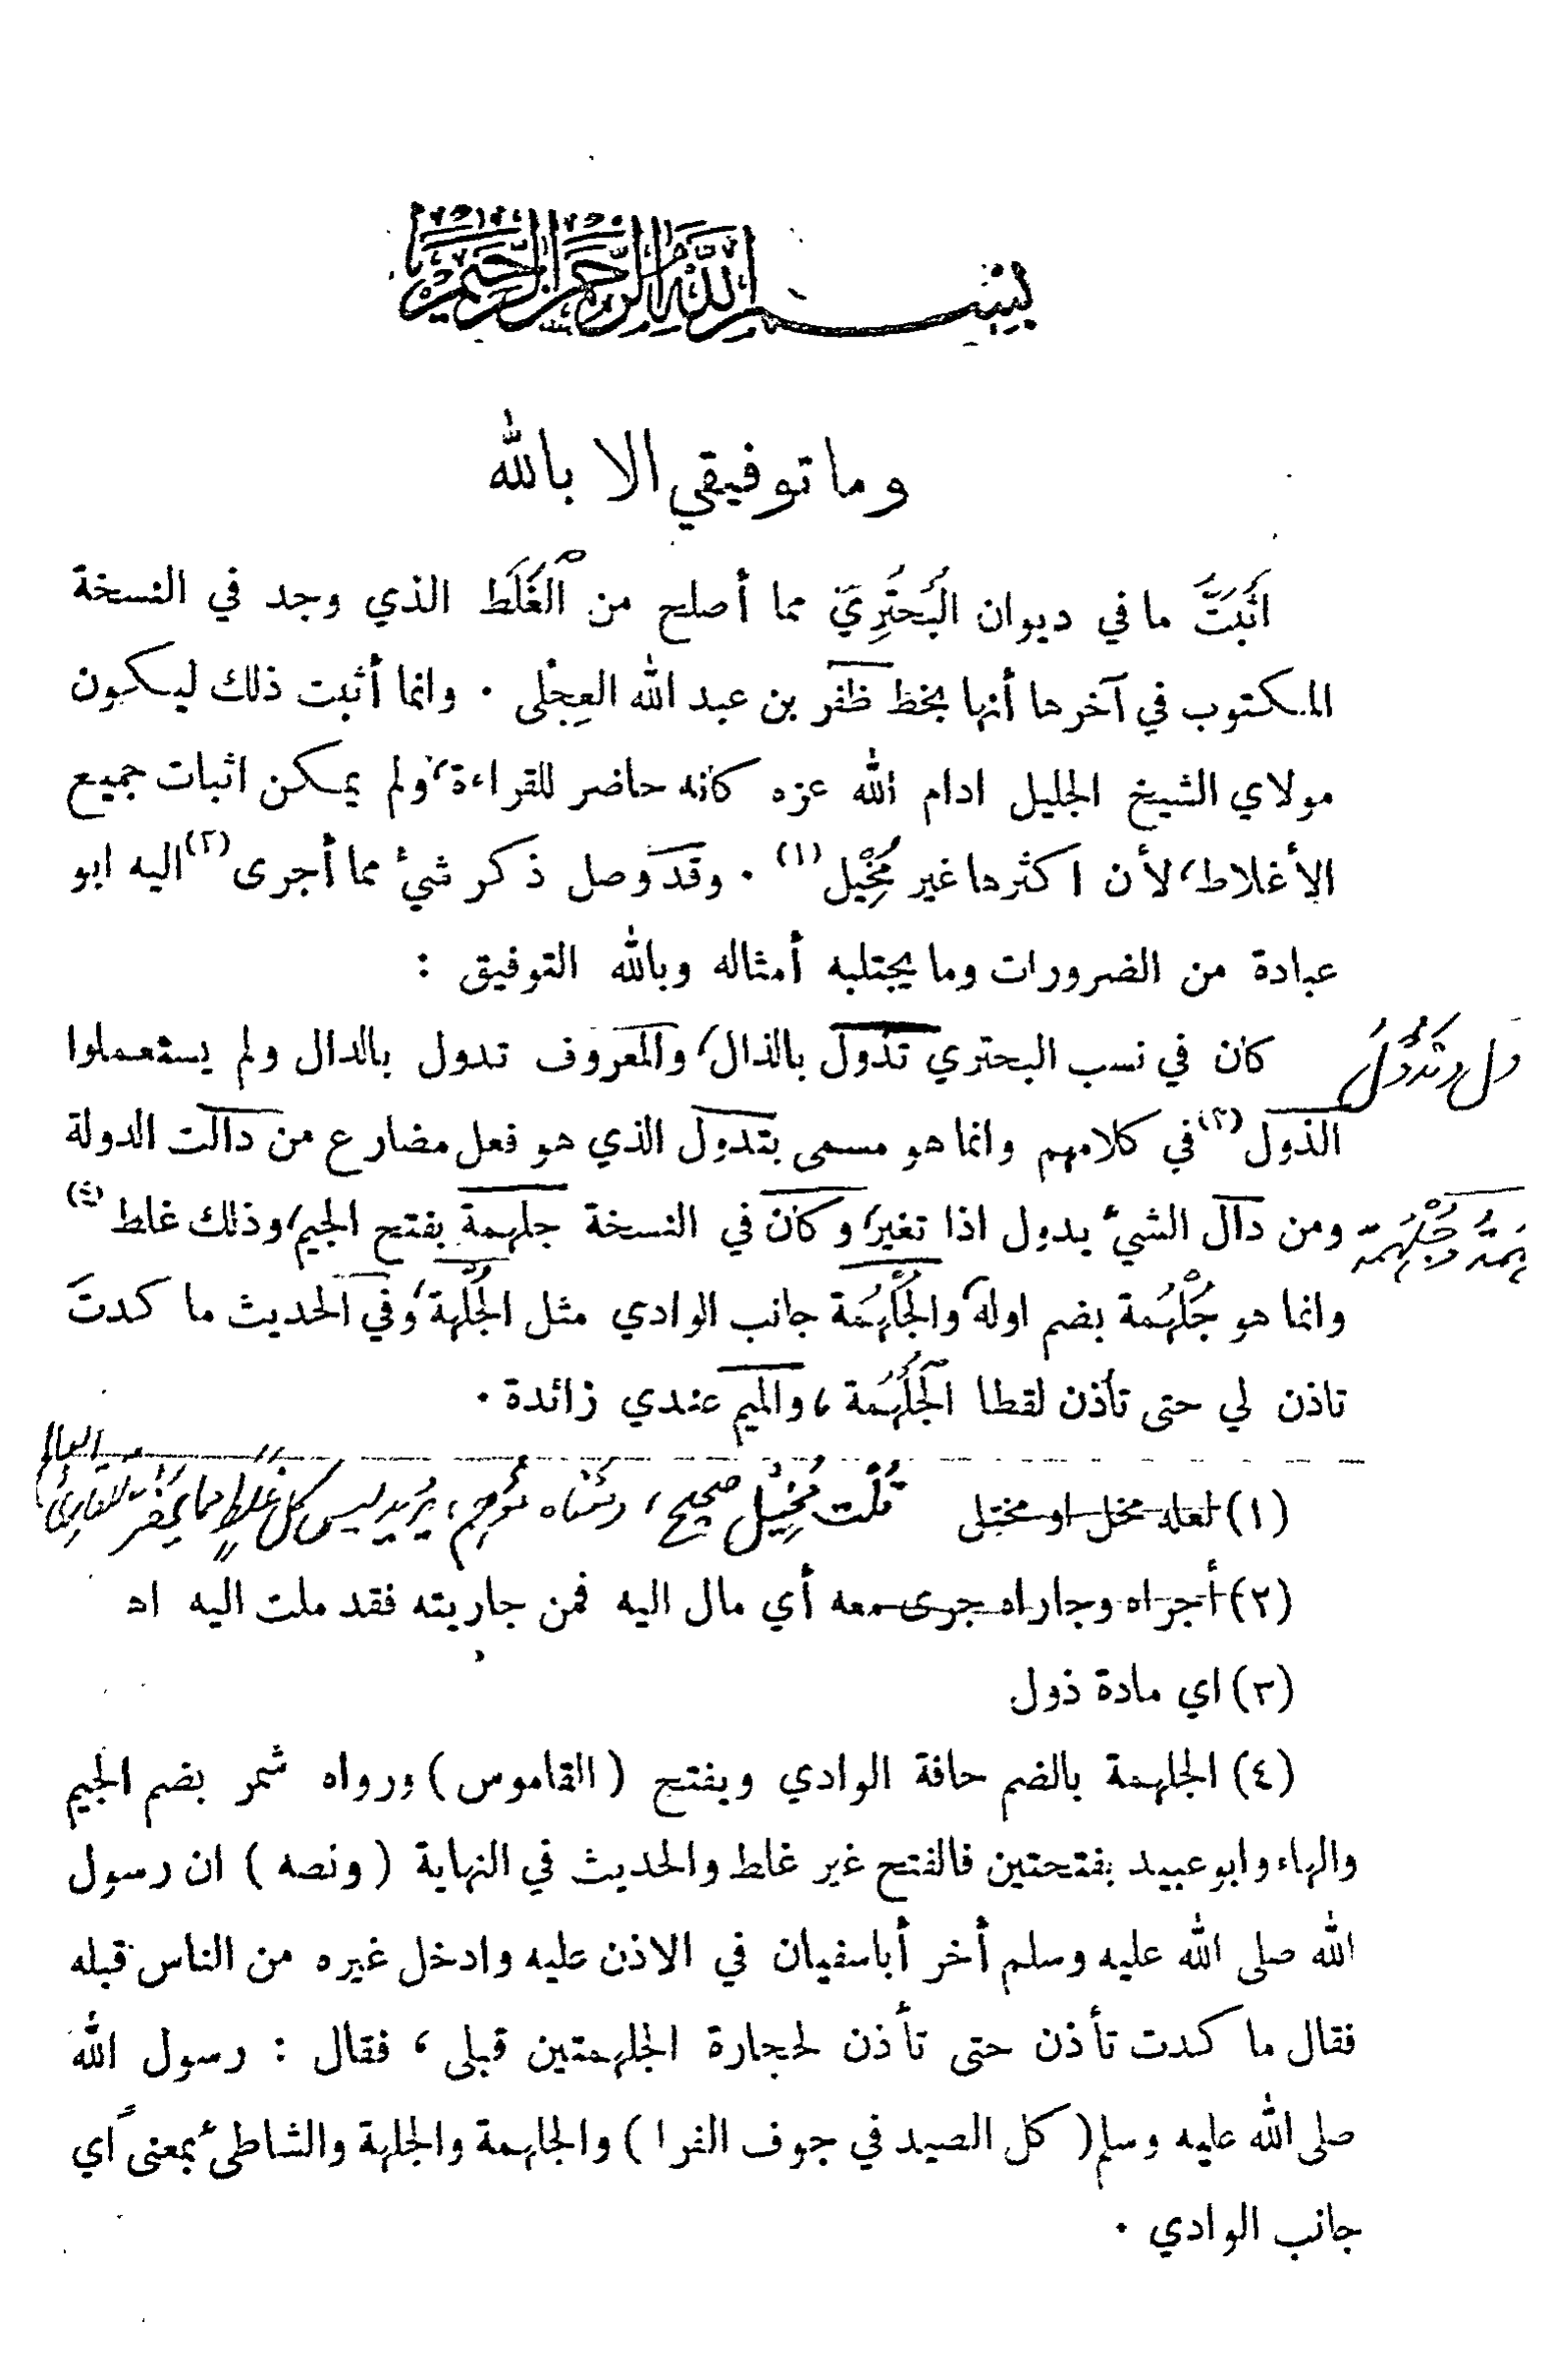 بِسْمِ اللَّهِ الرَّحْمَنِ الرَّحِيمِ
وما توفيقي الا بالله
اثبت ما في ديوان البُحتُرِيّ مما أصلح من الغَلَط الذي وجد في النسخة
المكتوب في آخرها أنها بخط ظفر بن عبد الله العِجْلى . وانما أثبت ذلك ليكون
مولاي الشيخ الجليل ادام الله عزه كانه حاضر للقراءة ، ولم يمكن اثبات جميع
الأغلاط ، لأن اكثرها غير مُخِيْل (١) . وقد وصل ذكر شيء مما أجرى (٢) اليه ابو
عبادة من الضرورات وما يجتلبه أمثاله وبالله التوفيق :
كان في نسب البحتري تذول بالذال ، والمعروف تدول بالدال ولم يستعملوا
الذول (٣) في كلامهم وانما هو مسمى بتدول الذي هو فعل مضارع من دالت الدولة
ومن دال الشيء يدول اذا تغير ، وكان في النسخة جلهمة بفتح الجيم ، وذلك غلط (٤)
وانما هو جُلْهُمة بضم اوله والجُلْهُمَة جانب الوادي مثل الجُلْهة ، وفي الحديث ما كدتَ
تاذن لي حتى تأذن لقطا الجُلْهُمَة ، والميم عندي زائدة .
(١) لعله مخل او مختل قُلْت مُخِيْل صحيح ، ومعناه مُوهِم ، يريد ليس كل غَلَطٍ مما يخفى
(٢) أجراه وجاراه جرى معه أي مال اليه فمن جاريته فقد ملت اليه اه
(٣) اي مادة ذول
(٤) الجلهمة بالضم حافة الوادي ويفتح (القاموس) ورواه شمر بضم الجيم
والهاء وابو عبيد بفتحتين فالفتح غير غلط والحديث في النهاية (ونصه) ان رسول
الله صلى الله عليه وسلم أخر أباسفيان في الاذن عليه وادخل غيره من الناس قبله
فقال ما كدت تأذن حتى تأذن لحجارة الجلهمتين قبلى ، فقال : رسول الله
صلى الله عليه وسلم (كل الصيد في جوف الفرا) والجلهمة والجلهة والشاطئ بمعنىً أي
جانب الوادي .